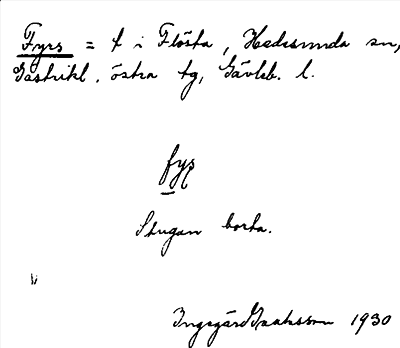 Fyrs = t i Flösta, Hedesunda sn,
Gästrikl. östra tg, Gävleb. l.
fyṣ
Stugan borta.
Ingegärd Isaksson 1930